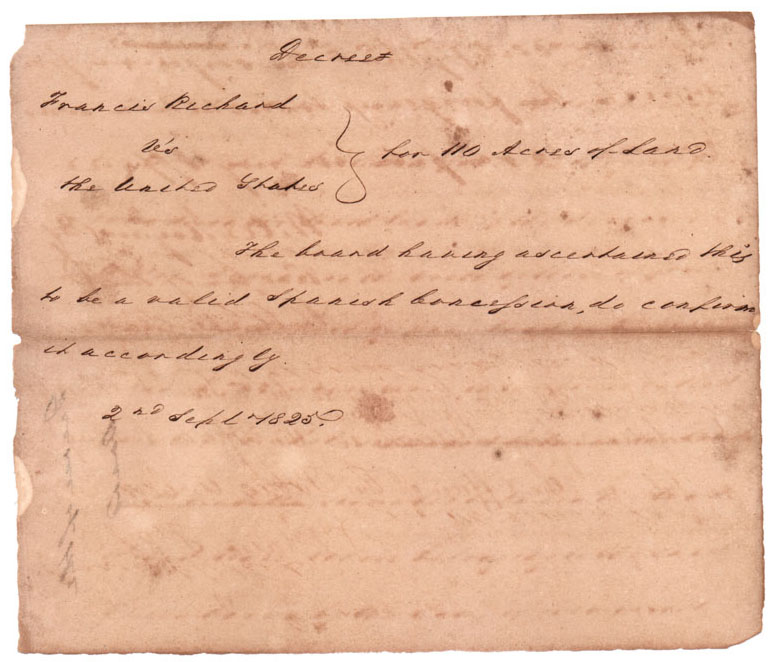 Decree
Francis Richard
Vs
the United States
for 110 Acres of Land.
The board having ascertained this
to be a valid Spanish Concession, do confirm
it accordingly.
2nd Sept 1825.